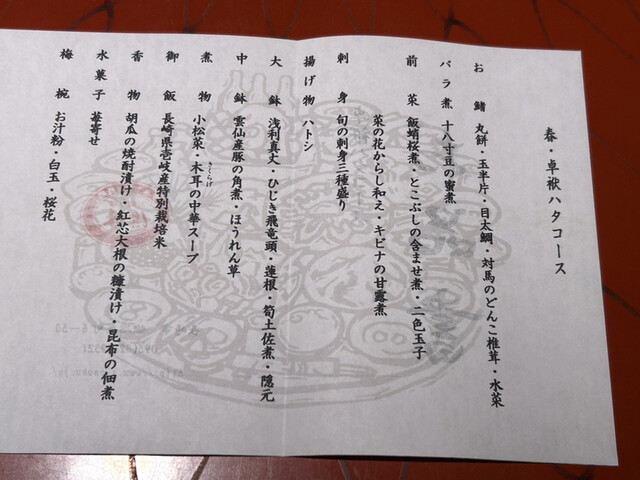 春・卓袱ハタコース
お鰭 丸餅・玉半片・目太鯛・対馬のどんこ椎茸・水菜
バラ煮 十八寸豆の蜜煮
前菜 飯蛸桜煮・とこぶしの含ませ煮・二色玉子
菜の花からし和え・キビナの甘露煮
刺身 旬の刺身三種盛り
揚げ物 ハトシ
大鉢 浅利真丈・ひじき飛竜頭・蓮根・筍土佐煮・隠元
中鉢 雲仙産豚の角煮・ほうれん草
煮物 小松菜・木耳の中華スープ
きくらげ
御飯 長崎県壱岐産特別栽培米
香物 胡瓜の焼酎漬け・紅芯大根の糠漬け・昆布の佃煮
水菓子 苺寄せ
梅椀 お汁粉・白玉・桜花